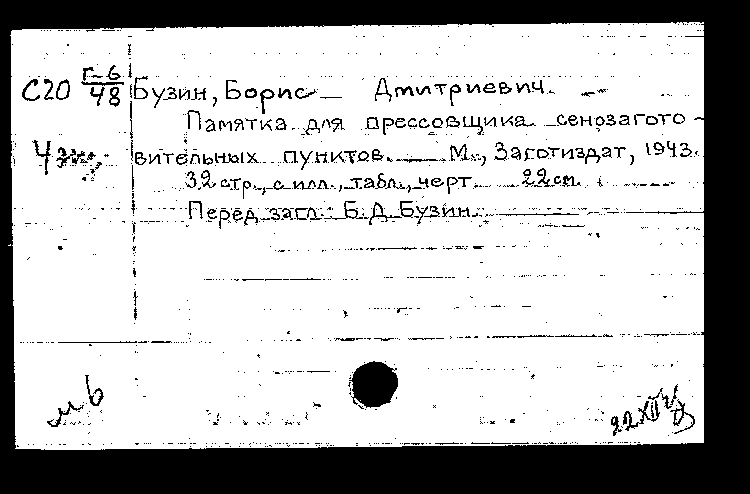 С20 Г-6/48 Бузин, Борис Дмитриевич.
Памятка для прессовщика сенозагото-
4 экз. вительных пунктов. — М., Заготиздат, 1943.
32 стр., с илл., табл., черт. 22 см.
Перед загл.: Б.Д. Бузин.